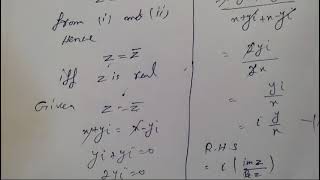 from (i) and (ii)
Hence
z = z̄
iff z is real
Given z = z̄
x+yi = x-yi
yi+yi = 0
2yi = 0
x+yi+x-yi
= 2yi
2x
= yi
x
= i y
x
R.H.S
= i (Imz